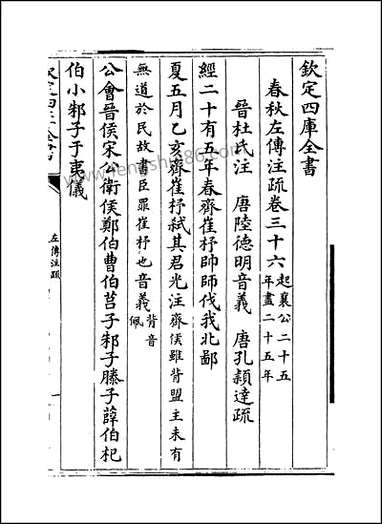 欽定四庫全書
春秋左傳注疏卷三十六起襄公二十五年盡二十五年
晉杜氏注 唐陸德明音義 唐孔穎達疏
經二十有五年春齊崔杼帥師伐我北鄙
夏五月乙亥齊崔杼弑其君光注齊侯雖背盟主未有
無道於民故書臣罪崔杼也音義背音佩
公會晉侯宋公衛侯鄭伯曹伯莒子邾子滕子薛伯杞
伯小邾子于夷儀
欽定四庫全書
左傳注疏
一